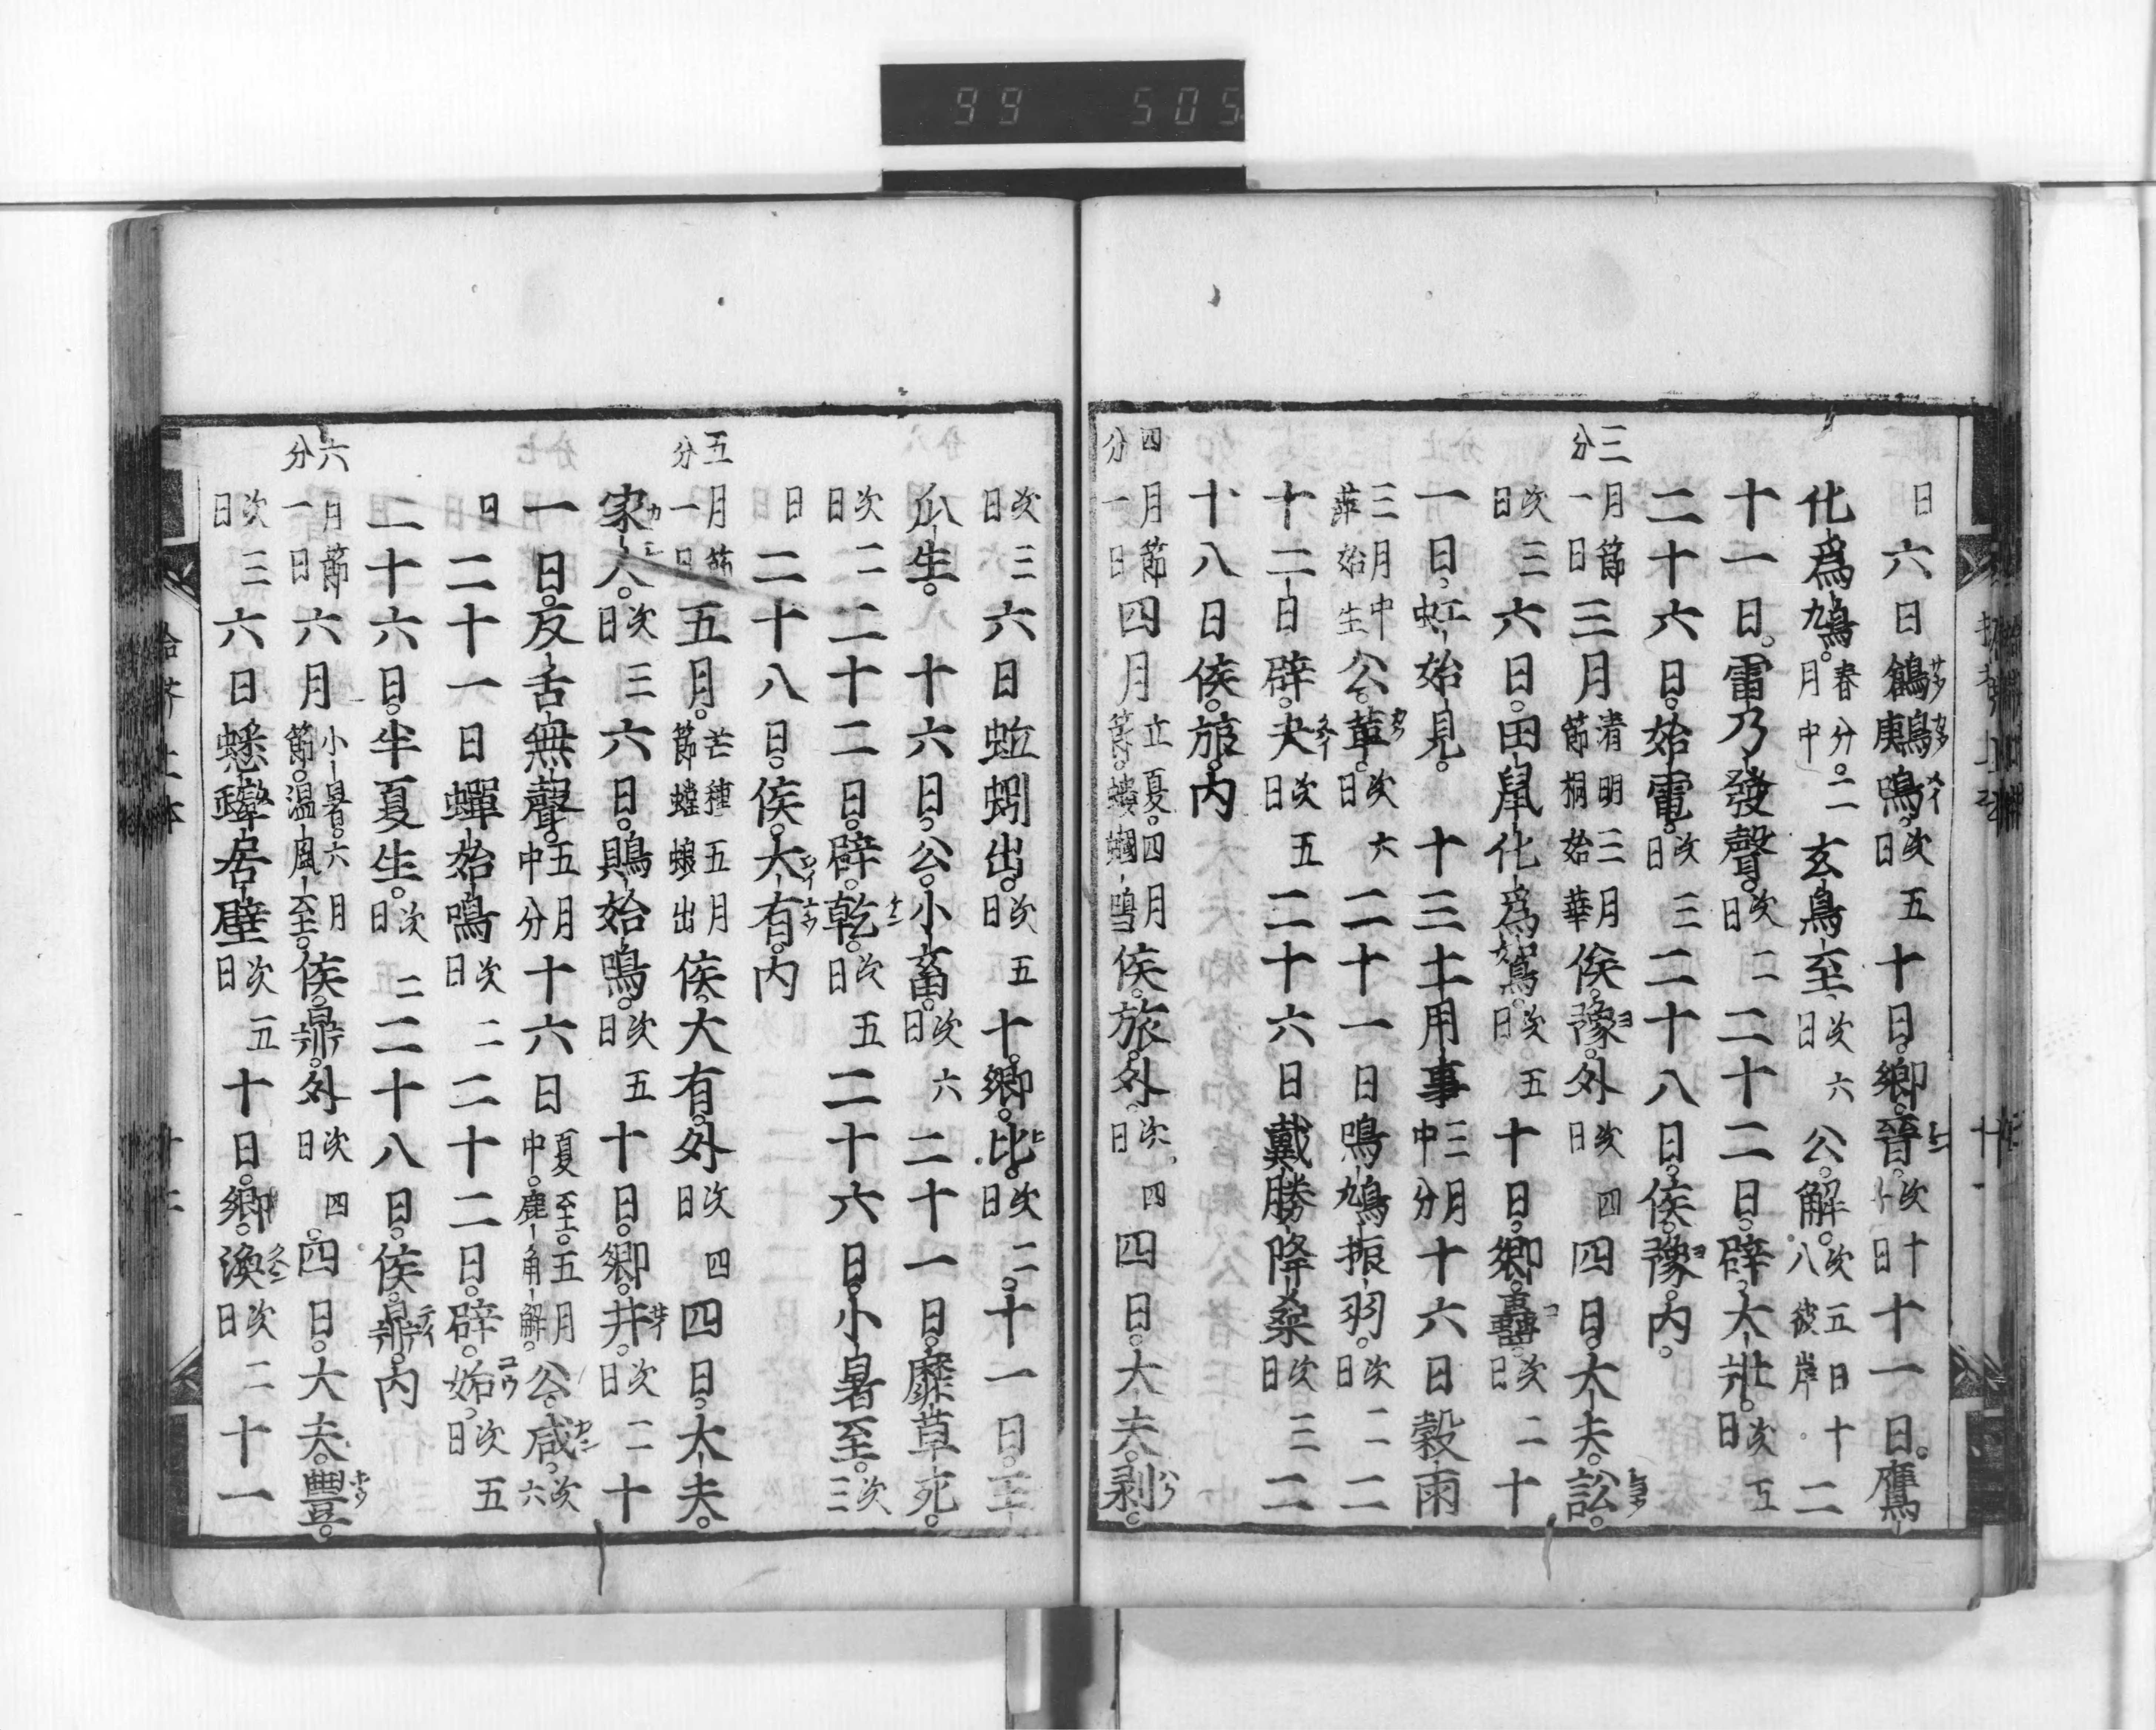 99 505
日六日鶬鶊鳴。次日五十日。卿。晉。次十十日十一日。鷹
化爲鳩。春分。二月中玄鳥至、次日六公。解。次五日十八彼岸二
十一日。雷乃發聲。次日二二十二日。辟。大壯。次日五
二十六日。始電。次日三二十八日。侯。豫。内。
三分
月節一日三月清明三月節桐始華侯。豫。外次日四四日。大夫。訟。
次日三六日。田鼠化爲鴽。次日五十日。卿。蠱。次日二十
一日。虹始見。十三土用事三月中分十六日穀雨
三月中萍始生公。革。次日六二十一日鳴鳩拂羽。次日二二
十二日。辟。夬次日五二十六日戴勝降桒次日三二
十八日侯。旅。内
四分
月節一日四月立夏。四月節。螻蟈鳴侯。旅。外。次日四四日。大夫。剥。
次日三六日蚯蚓出。次日五十。卿。比。次日二。十一日。王
瓜生。十六日。公。小畜。次日六二十一日。靡草死。
次日二二十二日。辟。乾。次日五二十六日。小暑至。次三
日二十八日。侯。大有。内
五分
月節一日五月。芒種五月節蟷螂出侯。大有。外次日四四日。大夫。
家人。次日三六日。鵙始鳴。次日五十日。卿。井。次日二十
一日。反舌無聲。五月中分十六日夏至。五月中鹿角解。公。咸。次六
日二十一日蟬始鳴次日二二十二日。辟。姤。次日五
二十六日。半夏生。次日二二十八日。侯。鼎。内
六分
月節一日六月小暑。六月節。温風至。侯。鼎。外次日四。四日。大夫。豐。
次日三六日蟋蟀居壁次日五十日。卿。渙次日二十一